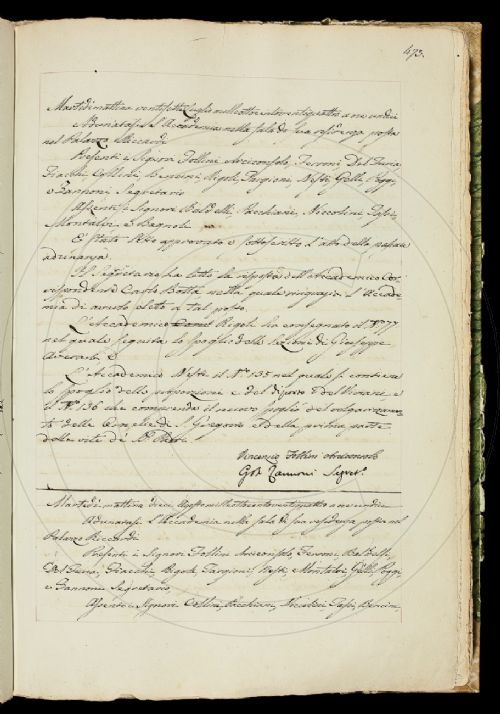 473.
Martedì mattina ventisette Luglio mille ottocentoventiquattro a ore undici
Adunatasi l'Accademia nella sala di sua residenza posta
nel Palazzo Riccardi
Presenti i Signori Follini Arciconsolo, Ferroni, Del Furia,
Fiacchi, Collini, Bencini, Rigoli, Targioni, Nesti, Gelli, Poggi,
e Zannoni Segretario
Assenti i Signori Baldelli, Pacchiani, Niccolini, Papi,
Montalvi, e Bagnoli
È stato letto approvato e sottoscritto l'atto della passata
adunanza.
Il Segretario ha letto la risposta dell'Accademico Cor-
rispondente Carlo Botta nella quale ringrazia l'Accade-
mia di averlo eletto a tal posto.
L'Accademico Rigoli ha consegnato il N.° 77
nel quale seguita lo spoglio delle Lezioni di Giuseppe
Averani
L'Accademico Nesti il N.° 135 nel quale si contiene
lo spoglio della e del
il N.° 136 che comprende il nuovo spoglio del volgarizzamen-
to delle Omelie di S. Gregorio e della prima parte
delle vite de' SS. Padri.
Vincenzio Follini Arciconsolo
G. B. Zannoni Segret.°
Martedì mattina dieci Agosto mille ottocentoventiquattro a ore undici
Adunatasi l'Accademia nella sala di sua residenza posta nel
Palazzo Riccardi
Presenti i Signori Follini Arciconsolo, Ferroni, Baldelli,
Del Furia, Fiacchi, Rigoli, Targioni, Nesti, Montalvi, Gelli, Poggi
e Zannoni Segretario,
Assenti i Signori Collini, Pacchiani, Niccolini, Papi, Bencini,